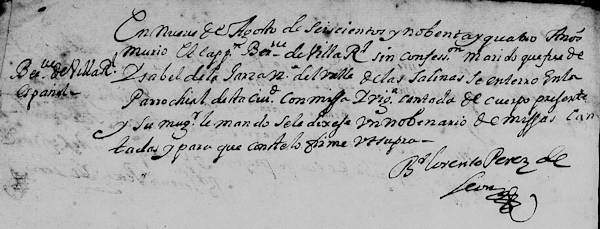 En nueve de Agosto de seiscientos y nobenta y quatro Anõs
murio El capp.n Ber.ve de Villa R.l sin confess.on marido que fue de
Ber.ve de Villa R.l
español
Ysabel de la Garza V.a del valle de las Salinas Se enterro En la
Parrochial desta Ciu.d Con missa Cantada de cuerpo presente
y su mug.r le mando se le dixese Vn nobenario de missas Can
tadas y para que conste lo firme Vt supra
B.r Lorenso Perez de
Leon